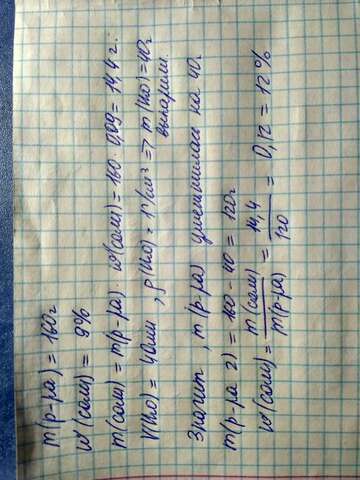 m(р-ра) = 160г
ω(соли) = 9%
m(соли) = m(р-ра) · ω(соли) = 160 · 0,09 = 14,4 г.
V(H₂O) = 40мл , ρ(H₂O) = 1 г/см³ => m(H₂O) = 40г
выпарили.
Значит, m(р-ра) уменьшилась на 40г
m(р-ра 2) = 160 - 40 = 120г
ω(соли) = m(соли)/m(р-ра) = 14,4/120 = 0,12 = 12%